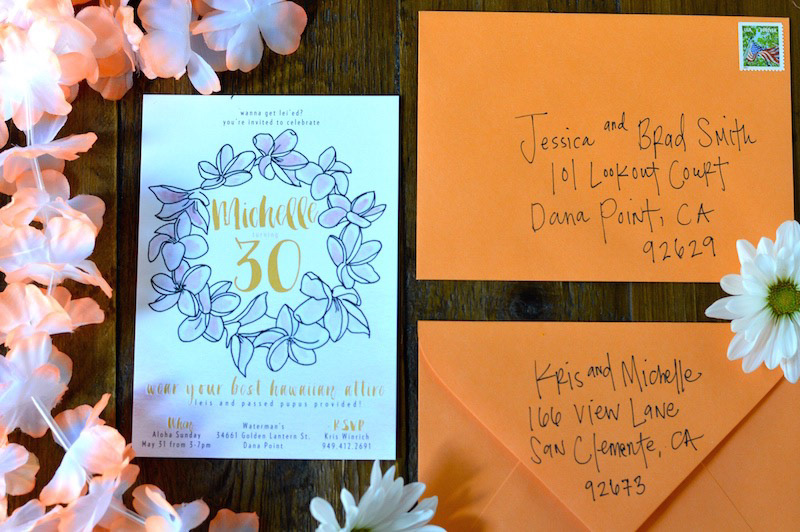 wanna get lei'ed?
you're invited to celebrate
Michelle
turning
30
wear your best hawaiian attire
leis and passed pupus provided!
When
Aloha Sunday
May 31 from 3-7pm
Waterman's
34661 Golden Lantern St.
Dana Point
RSVP
Kris Winrich
949.412.2691
Jessica and Brad Smith
101 Lookout Court
Dana Point, CA
92629
Kris and Michelle
166 View Lane
San Clemente, CA
92673